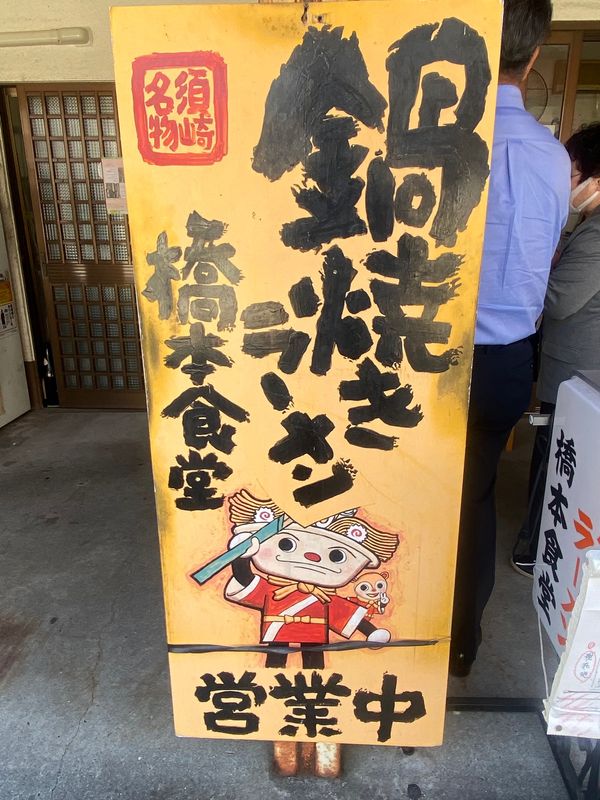 須崎
名物
鍋焼き
ラーメン
橋本食堂
営業中
橋本食堂